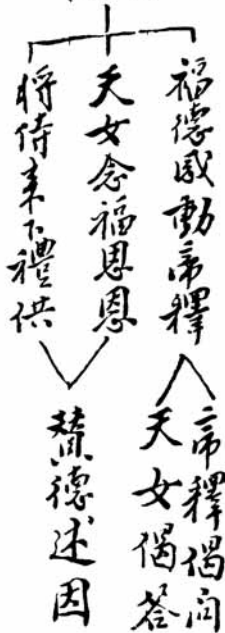 福德感動帝釋
帝釋偈问
天女偈答
天女念福思恩
将侍来下禮供
赞德述因